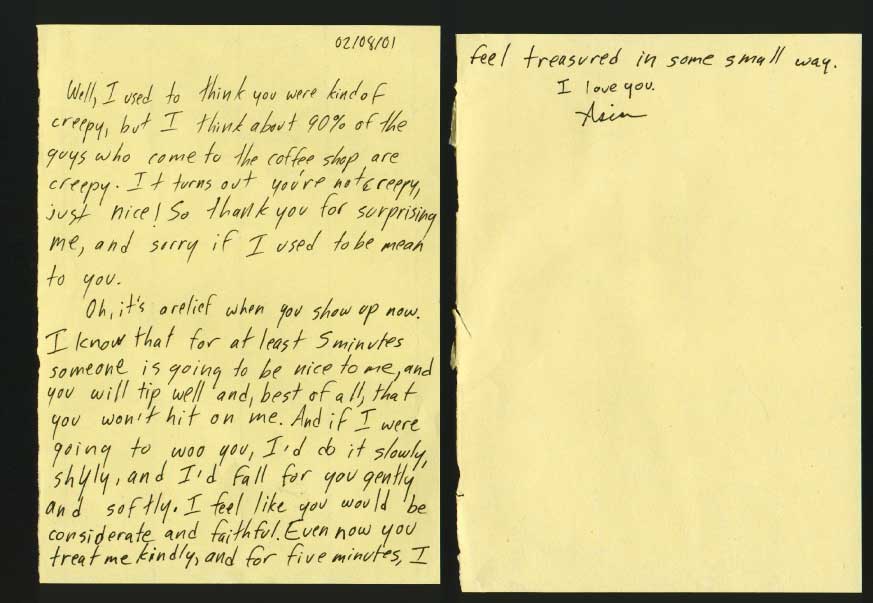 02/08/01
Well, I used to think you were kind of
creepy, but I think about 90% of the
guys who come to the coffee shop are
creepy. It turns out you're not creepy,
just nice! So thank you for surprising
me, and sorry if I used to be mean
to you.
Oh, it's a relief when you show up now.
I know that for at least 5 minutes
someone is going to be nice to me, and
you will tip well and, best of all, that
you won't hit on me. And if I were
going to woo you, I'd do it slowly,
shyly, and I'd fall for you gently
and softly. I feel like you would be
considerate and faithful. Even now you
treat me kindly, and for five minutes, I
feel treasured in some small way.
I love you.